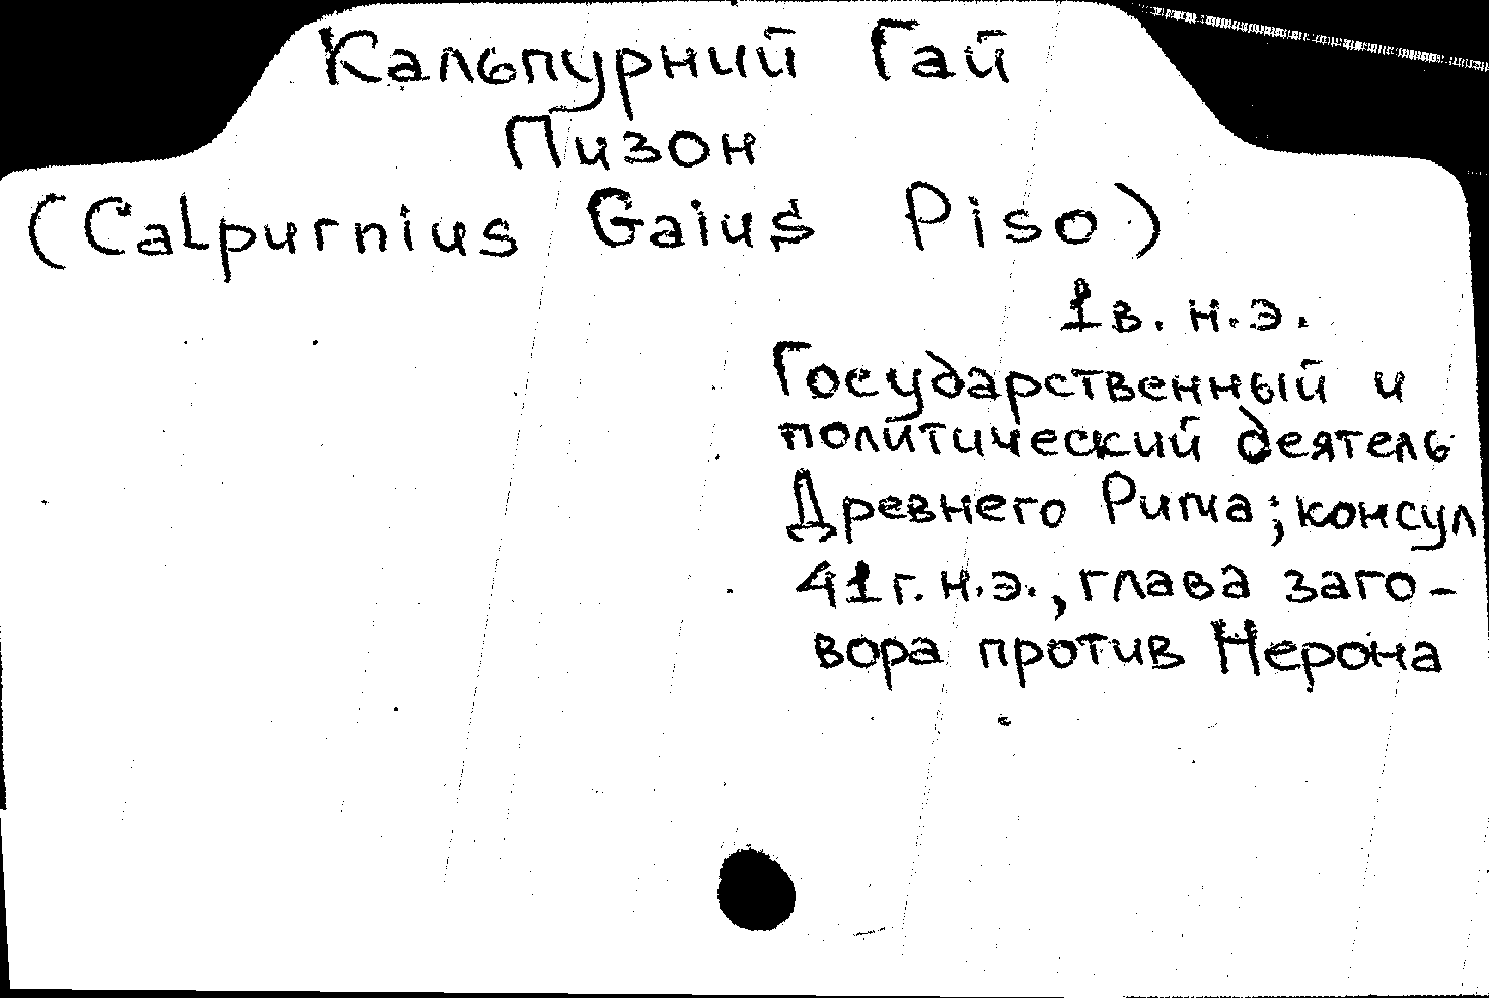 Кальпурний Гай
Пизон
(Calpurnius Gaius Piso)
1 в. н.э.
Государственный и
политический деятель
Древнего Рима; консул
41 г. н.э., глава заго-
вора против Нерона